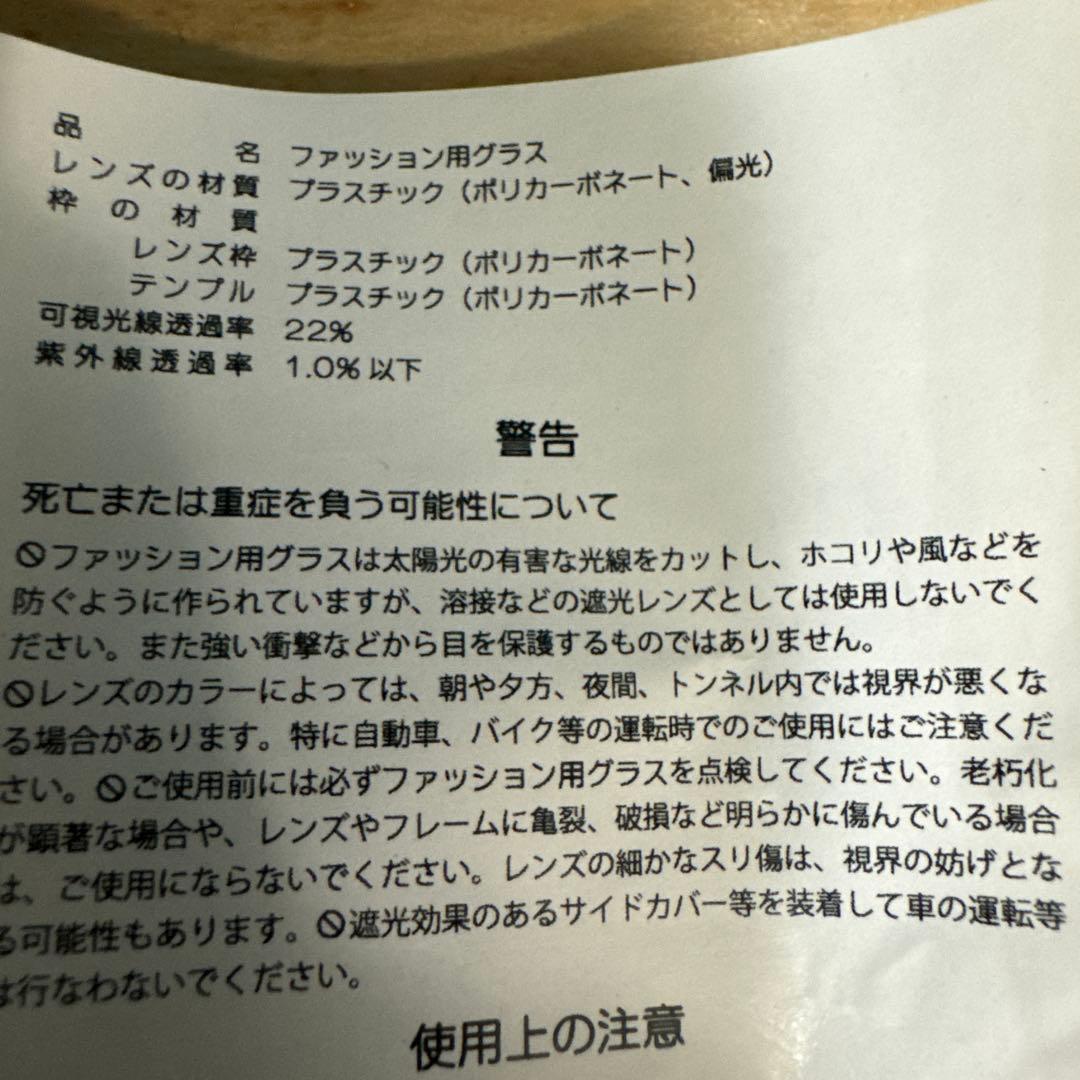 品名 ファッション用グラス
レンズの材質 プラスチック（ポリカーボネート、偏光）
枠の材質
レンズ枠 プラスチック（ポリカーボネート）
テンプル プラスチック（ポリカーボネート）
可視光線透過率 22%
紫外線透過率 1.0%以下
警告
死亡または重症を負う可能性について
🛇ファッション用グラスは太陽光の有害な光線をカットし、ホコリや風などを
防ぐように作られていますが、溶接などの遮光レンズとしては使用しないでく
ださい。また強い衝撃などから目を保護するものではありません。
🛇レンズのカラーによっては、朝や夕方、夜間、トンネル内では視界が悪くな
る場合があります。特に自動車、バイク等の運転時でのご使用にはご注意くだ
さい。🛇ご使用前には必ずファッション用グラスを点検してください。老朽化
が顕著な場合や、レンズやフレームに亀裂、破損など明らかに傷んでいる場合
は、ご使用にならないでください。レンズの細かなスリ傷は、視界の妨げとな
る可能性もあります。🛇遮光効果のあるサイドカバー等を装着して車の運転等
は行なわないでください。
使用上の注意